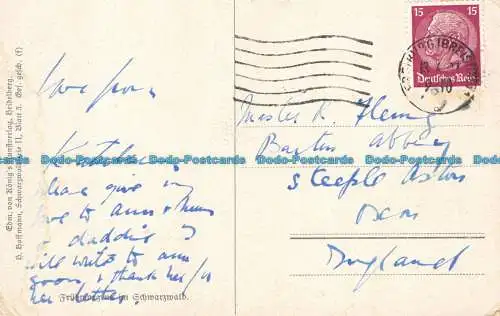 Love from
Kathleen
please give my
love to ann & mum
& daddie I
will write to ann
soon, & thank her for
her letter.
Frühlingstag im Schwarzwald.
Edm. von König's Kunstverlag, Heidelberg.
H. Hoffmann, Schwarzwaldserie II, Blatt 5. Ges. gesch. (f)
15 15
Deutsches Reich
Master R. Fleming
Barton Abbey
Steeple Aston
Oxon
England
Dodo-Postcards Dodo-Postcards Dodo-Postcards Dodo-Postcards